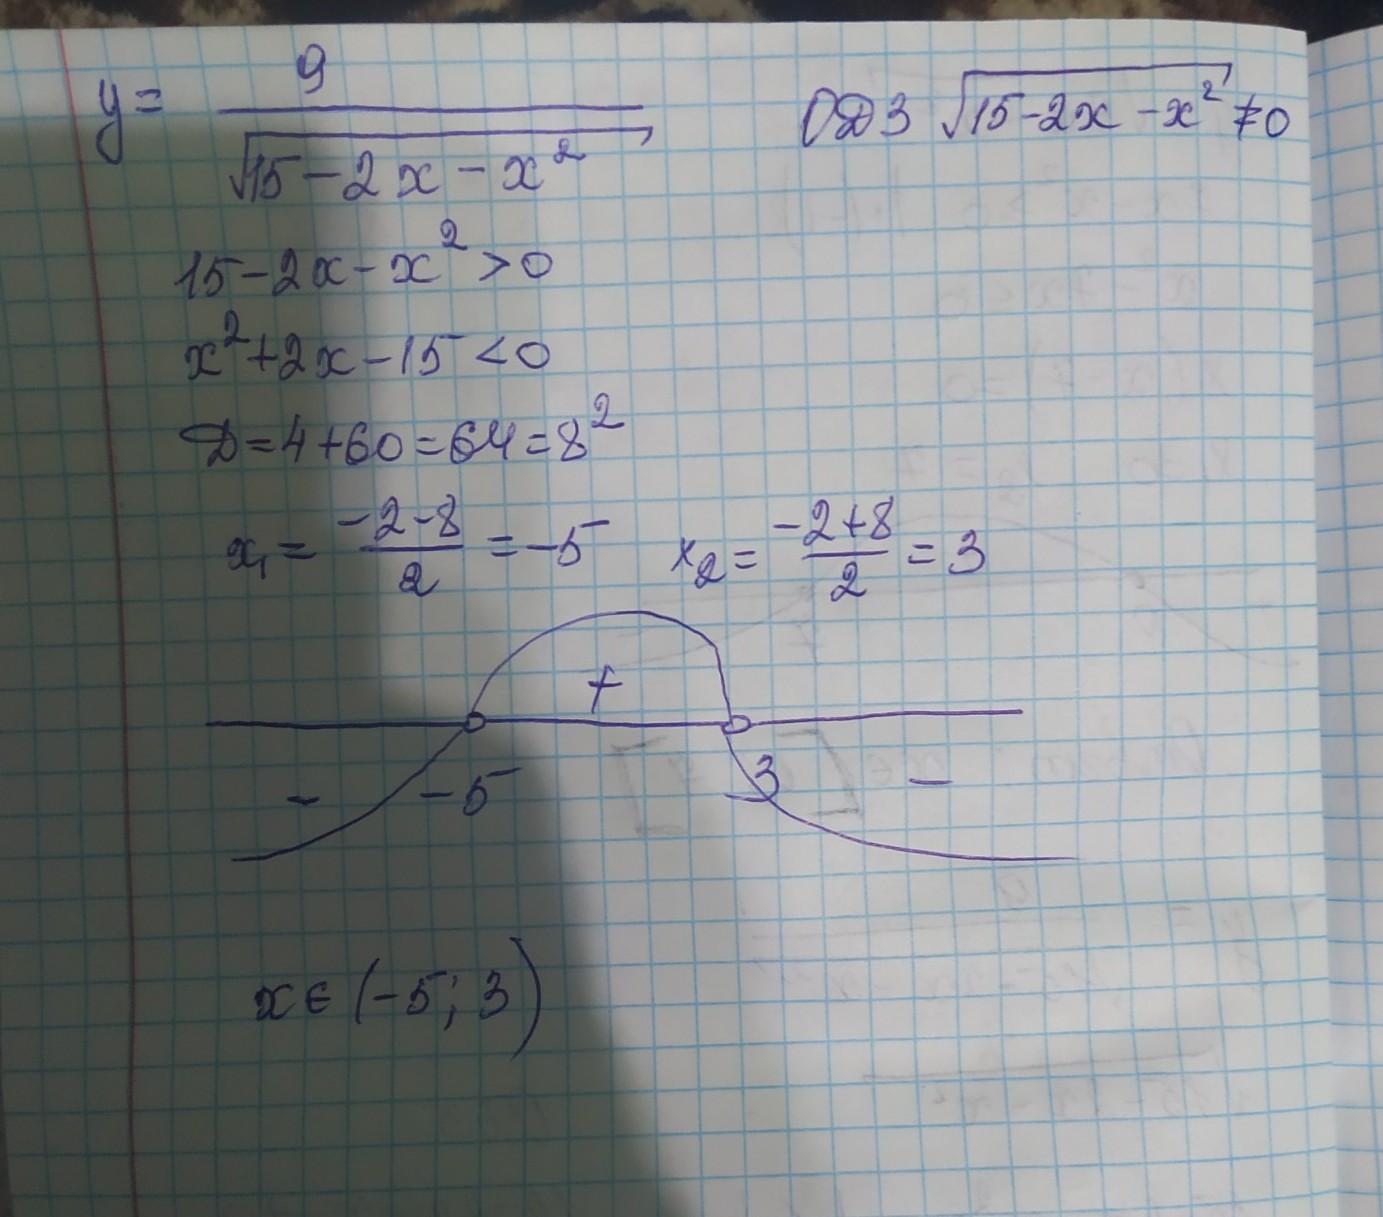 y = 9 / √15 - 2x - x²
ОДЗ √15 - 2x - x² ≠ 0
15 - 2x - x² > 0
x² + 2x - 15 < 0
D = 4 + 60 = 64 = 8²
x₁ = -2 - 8 / 2 = -5 x₂ = -2 + 8 / 2 = 3
+
- -5 3 -
x ∈ (-5; 3)